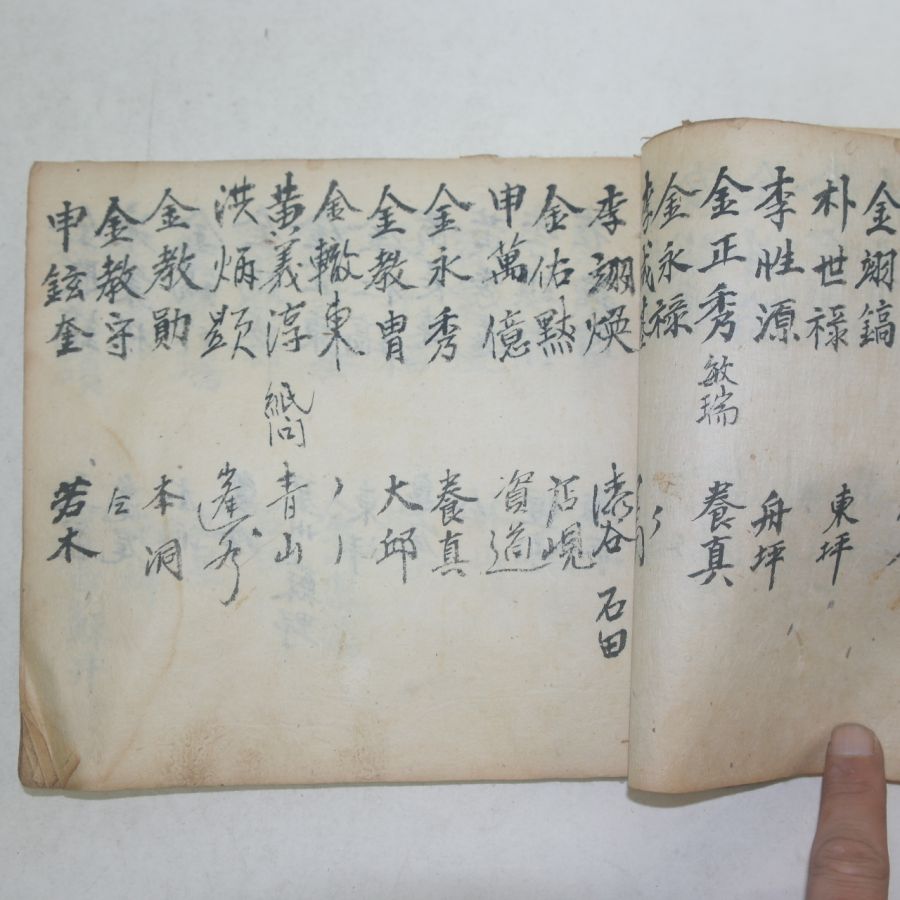 金翊鎬
朴世祿 東坪
李性源 舟坪
金正秀 敏瑞 養真
金永祿
李翊煥 漆谷 石田
金佑默 沾峴
申萬億 資道
金永秀 養真
金教胄 大邱
金轍東 〃
黄義淳 紙向 青山
洪炳顕
金教勛 本洞
金教守 仝
申鉉奎 若木